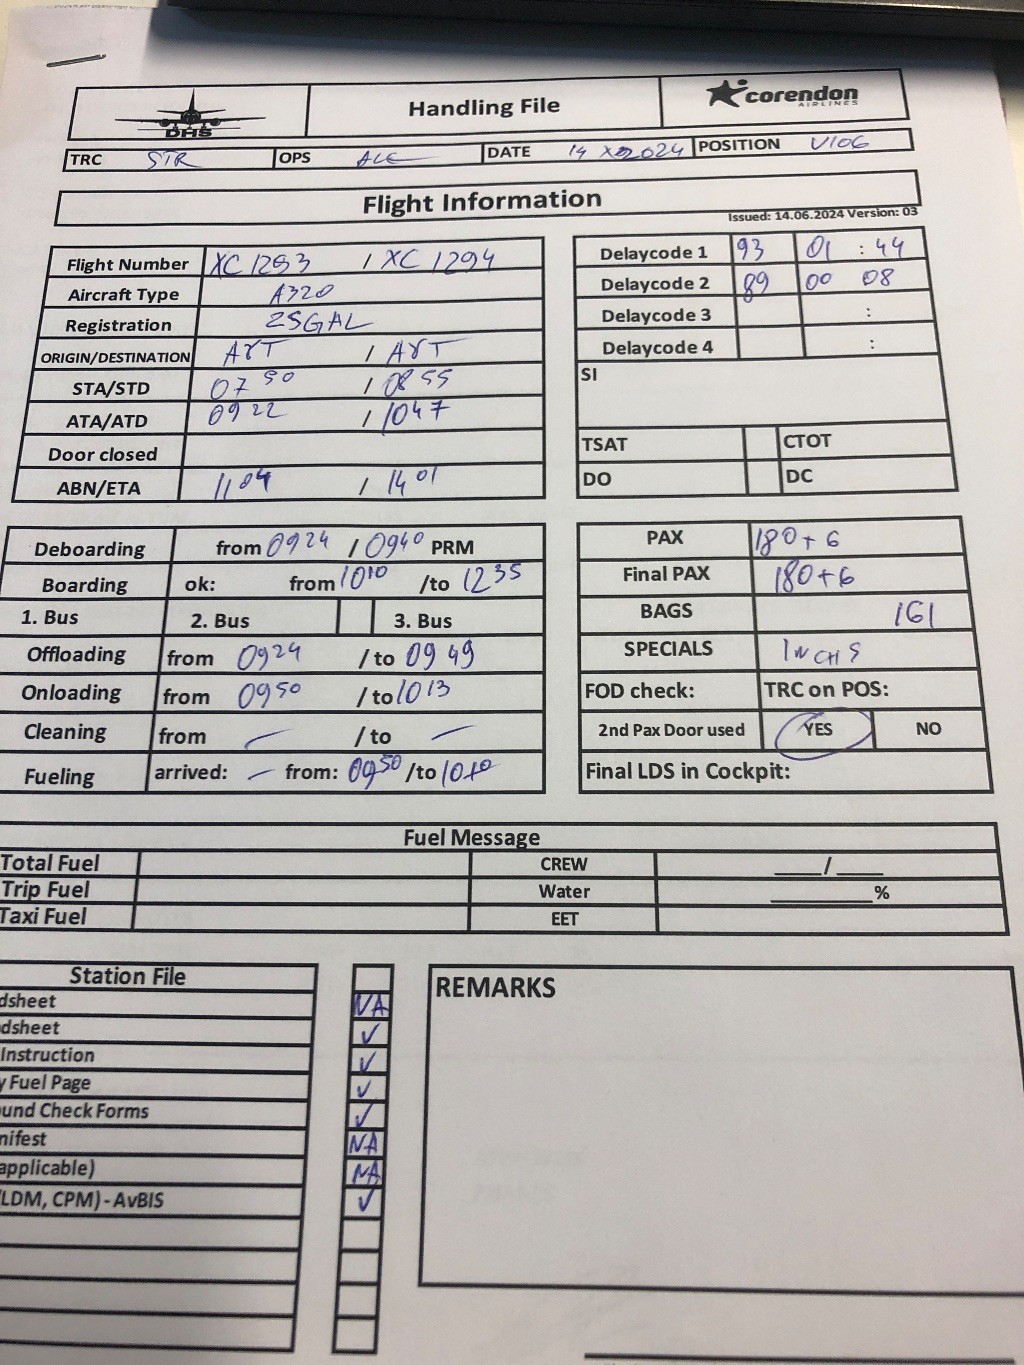 DHS
Handling File
corendon
AIRLINES
TRC STR OPS DATE 14 2024 POSITION V106
Flight Information
Issued: 14.06.2024 Version: 03
Flight Number XC 1293 / XC 1294
Aircraft Type A320
Registration ZSGAL
ORIGIN/DESTINATION AYT / AYT
STA/STD 07 50 / 08 55
ATA/ATD 09 22 / 1047
Door closed
ABN/ETA 1104 / 14 01
Delaycode 1 93 01 : 44
Delaycode 2 89 00 08
Delaycode 3 :
Delaycode 4 :
SI
TSAT CTOT
DO DC
Deboarding from 0924 / 0940 PRM
Boarding ok: from 1010 /to 1235
1. Bus 2. Bus 3. Bus
Offloading from 0924 / to 09 49
Onloading from 0950 / to 1013
Cleaning from — / to —
Fueling arrived: — from: 0950 /to 1010
PAX 180+6
Final PAX 180+6
BAGS 161
SPECIALS
FOD check: TRC on POS:
2nd Pax Door used YES NO
Final LDS in Cockpit:
Fuel Message
Total Fuel CREW ____/____
Trip Fuel Water ________%
Taxi Fuel EET
Station File
dsheet NA
dsheet ✓
Instruction ✓
y Fuel Page ✓
und Check Forms ✓
nifest NA
applicable) NA
LDM, CPM) - AvBIS ✓
REMARKS